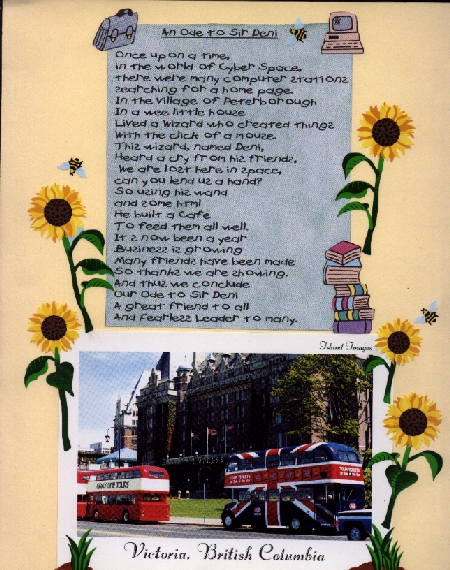 An Ode to Sir Deni
Once upon a time,
in the world of Cyber Space,
there were many computer stations
searching for a home page.
In the Village of Peterborough
In a wee little house
Lived a Wizard who created things
With the click of a mouse.
This wizard, named Deni,
Heard a cry from his friends,
We are lost here in space,
can you lend us a hand?
So using his wand
and some html
He built a Cafe
To feed them all well.
It s now been a year
Business is growing
Many friends have been made
So thanks we are showing.
And thus we conclude
Our Ode to Sir Deni
A great friend to all
And Fearless Leader to many.
Island Images
Victoria, British Columbia